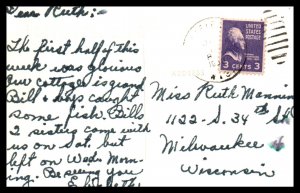 Dear Ruth:-
The first half of this
week was glorious
Our cottage is grand
Bill + boys caught
some fish. Bills
2 sisters came with
us on Sat. but
left on Weds morn-
ing. Be seeing you
UNITED STATES POSTAGE
3 CENTS 3
Miss Ruth Mannin
1122-S. 34th St
Milwaukee
Wisconsin